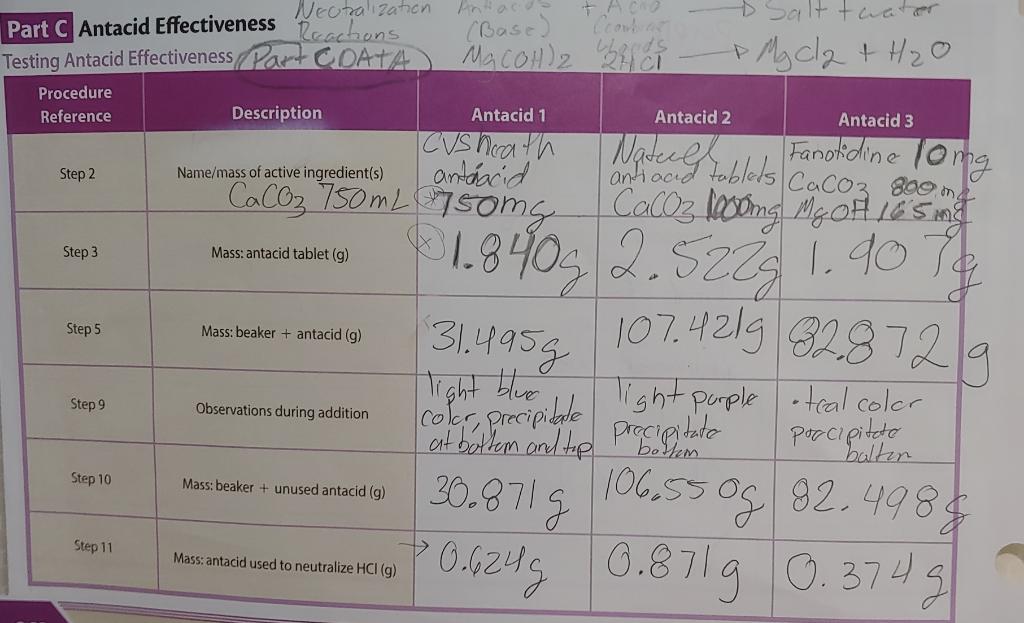 Neutralization Antacids + Acid → Salt + water
Part C Antacid Effectiveness Reactions (Base) (combine
Testing Antacid Effectiveness Part C DATA Mg(OH)2 2HCl → MgCl2 + H2O
Procedure Reference Description Antacid 1 Antacid 2 Antacid 3
Step 2 Name/mass of active ingredient(s)
CaCO3 750mL
CVS health
antacid
750mg
antiacid tablets
CaCO3 1000mg
Famotidine 10mg
CaCO3 800mg
MgOH 165mg
Step 3 Mass: antacid tablet (g) 1.840g 2.522g 1.907g
Step 5 Mass: beaker + antacid (g) 31.495g 107.421g 82.872g
Step 9 Observations during addition
light blue
color, precipitate
at bottom and top
light purple
precipitate
bottom
• teal color
precipitate
Step 10 Mass: beaker + unused antacid (g) 30.871g 106.550g 82.498g
Step 11 Mass: antacid used to neutralize HCl (g) → 0.624g 0.871g 0.374g